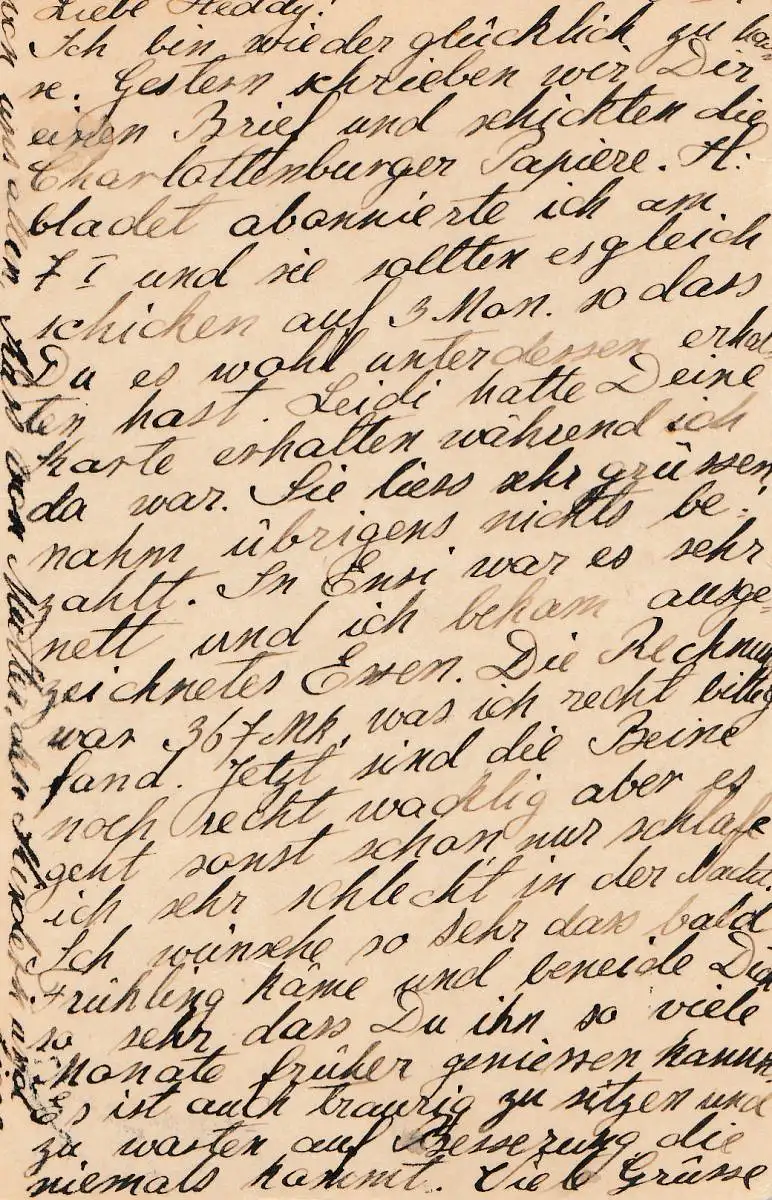 Liebe Heddy!
Ich bin wieder glücklich zu hau
se. Gestern schrieben wir Dir
einen Brief und schickten die
Charlottenburger Papiere. H:
bladet abonnierte ich am
7 I und sie sollten es gleich
schicken auf 3 Mon. so dass
Du es wohl unterdessen erhal
ten hast. Leidi hatte Deine
Karte erhalten während ich
da war. Sie liess sehr grüssen
nahm übrigens nichts be-
zahlt. In Ensi war es sehr
nett und ich bekam ausge-
zeichnetes Essen. Die Rechnung
war 367 Mk, was ich recht billig
fand. Jetzt sind die Beine
noch recht wacklig aber es
geht sonst schon nur schlafe
ich sehr schlecht in der Nacht.
Ich wünsche so sehr dass bald
Frühling käme und beneide Dich
so sehr dass Du ihn so viele
Monate früher geniessen kannst
Es ist auch traurig zu sitzen und
zu warten auf Besserung die
niemals kommt. Viele Grüsse
von uns allen, von Mutter, den Kindern und